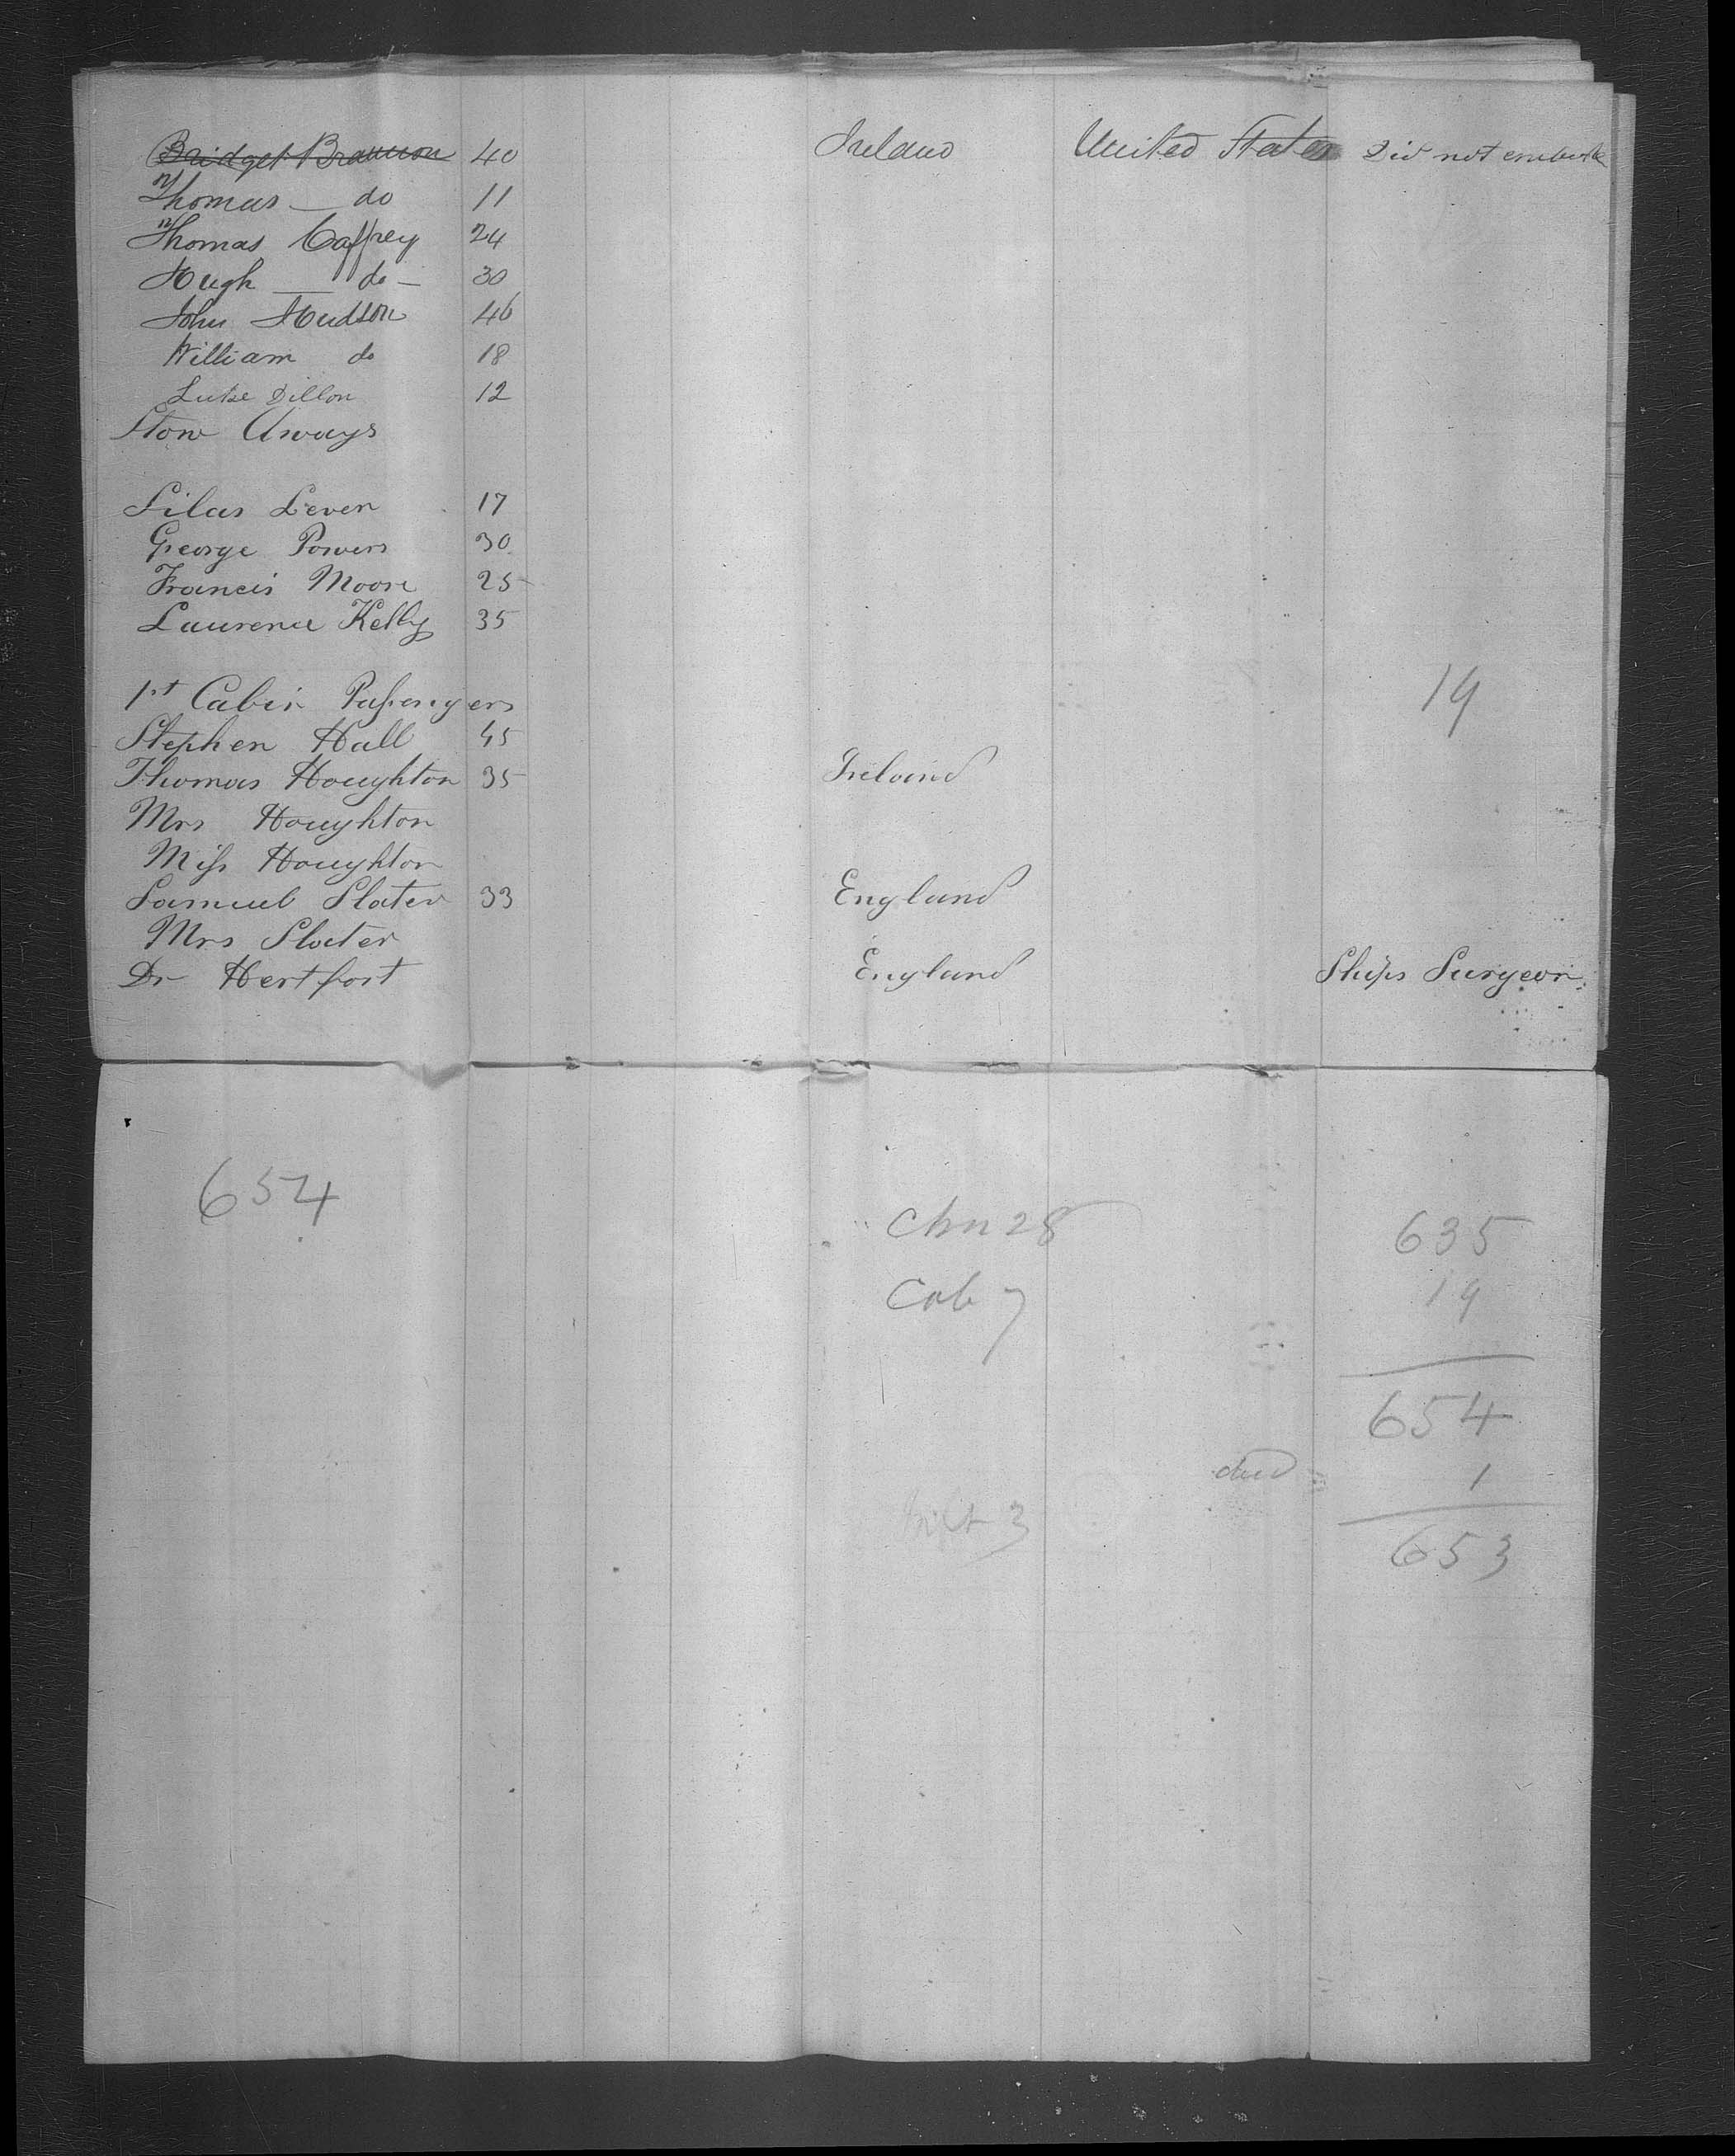 Bridget Brannon 40 Ireland United States Did not embark
Thomas — do 11
Thomas Caffrey 24
Hugh — do — 30
John Hudson 46
William do 18
Luke Dillon 12
Stow Aways
Silas Lever 17
George Powers 30
Francis Moore 25
Laurence Kelly 35
1st Cabin Passengers
19
Stephen Hall 45
Thomas Houghton 35 Ireland
Mrs Houghton
Miss Houghton
Samuel Slater 33 England
Mrs Slater
Dr Hertfort England Ships Surgeon
654
Chn 28 635
Cab 7 19
654
died 1
3
653